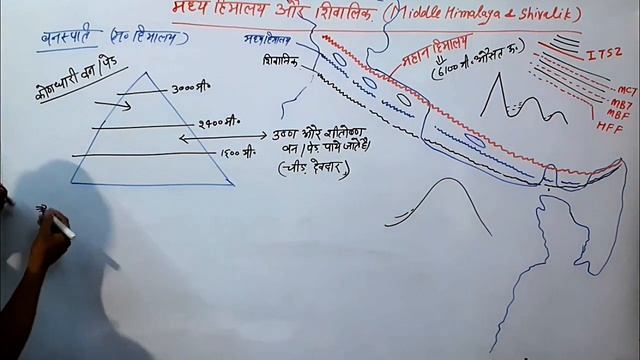 मध्य हिमालय और शिवालिक (Middle Himalaya & Shivalik)
वनस्पति (म० हिमालय)
कोणधारी वन/पेड़
३००० मी॰
२४०० मी॰
१६०० मी॰
उष्ण और शीतोष्ण
वन/पेड़ पाये जाते हैं
(चीड़ देवदार)
मध्य हिमालय
शिवालिक
महान हिमालय
(6100 मी॰ औसत ऊ.)
ITSZ
MCT
MBT
MBF
HFF